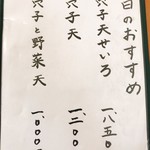 日のおすすめ
穴子天せいろ 一、八五〇
穴子天 一、二〇〇
穴子と野菜天 一、〇〇〇